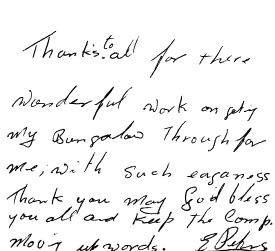 Thanks to all for there
wonderful work on getting
my Bungalow Through for
me, with Such eaganess
Thank you may God bless
you all and Keep The Comp.
moving upwords. E Peters